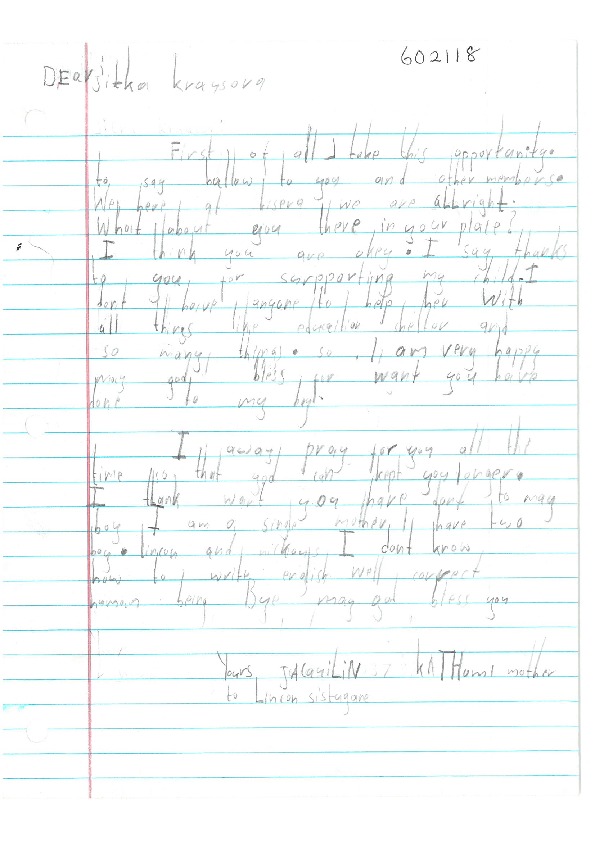 602118
DEar jitka kraysora
First of all I take this opportunity.
to say hallow to you and other members.
We here at bisera we are allright.
What about you there in your plale?
I think you are okey. I say thanks
to you for supporting my child. I
dont have anyone to help her With
all things like education sheltor and
so many things. so . I am very happy
may god bless for want you have
done to my boy.
I away pray for you all the
time so that god can kept you longer.
I thank want you have done to may
boy I am a single mother I have two
boy. lincon and I dont know
how to write english well correct
human being Bye may god bless you
Yours, JACquiLiN KATHomi mother
to Lincon